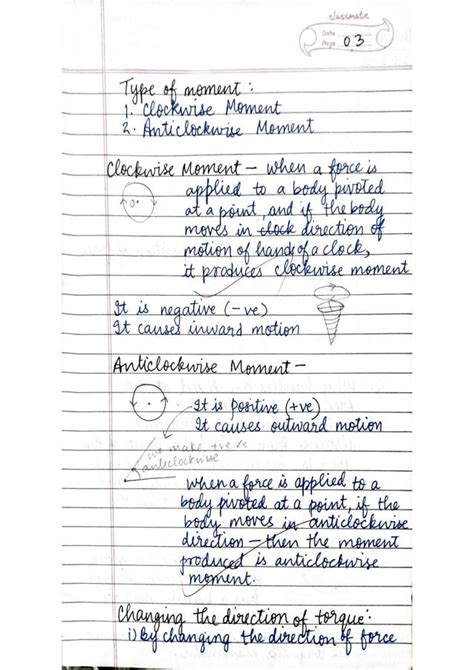 classmate
Date
Page 03
Type of moment :
1. Clockwise Moment
2. Anticlockwise Moment
Clockwise Moment — when a force is
applied to a body pivoted
at a point, and if the body
moves in clock direction of
motion of hands of a clock,
it produces clockwise moment
It is negative (-ve)
It causes inward motion
Anticlockwise Moment —
It is positive (+ve)
It causes outward motion
we make +ve
anticlockwise
when a force is applied to a
body pivoted at a point, if the
body moves in anticlockwise
direction — then the moment
produced is anticlockwise
moment.
Changing the direction of torque:
i) by changing the direction of force